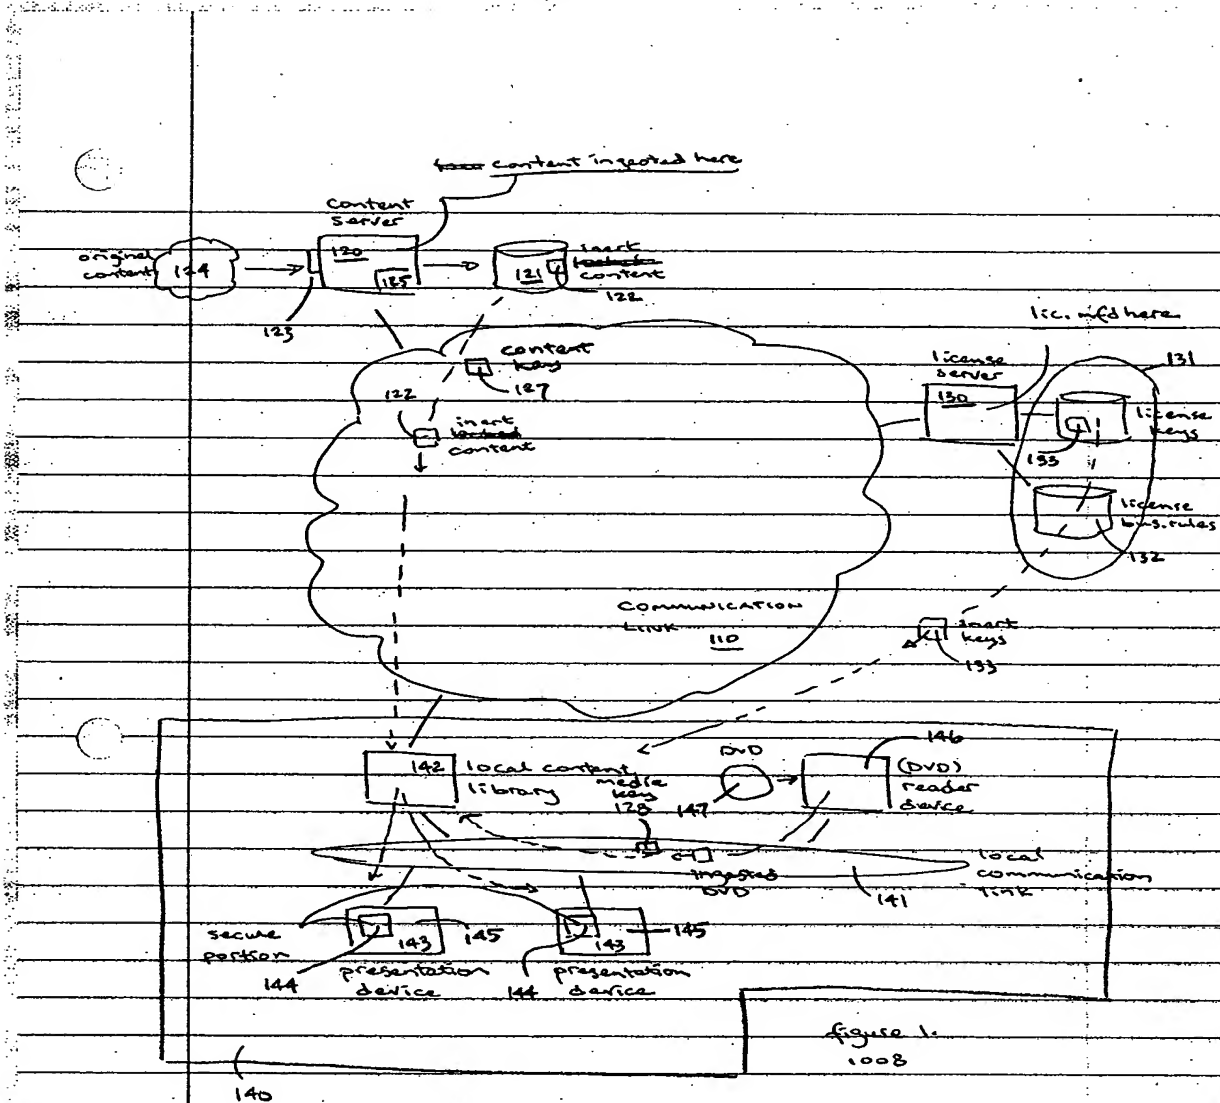 content ingested here
content
server
original
content
124
120
125
121
inert
content
122
123
lic. mfd here
content
key
127
122
inert
content
license
server
130
131
license
keys
133
license
bus. rules
132
COMMUNICATION
LINK 110
inert
keys
133
142
local content
library
media
key
128
DVD
147
146
(DVD)
reader
device
ingested
DVD
local
communication
link
141
secure
portion
143
145
143
145
144
presentation
device
144
presentation
device
figure 1.
1008
140